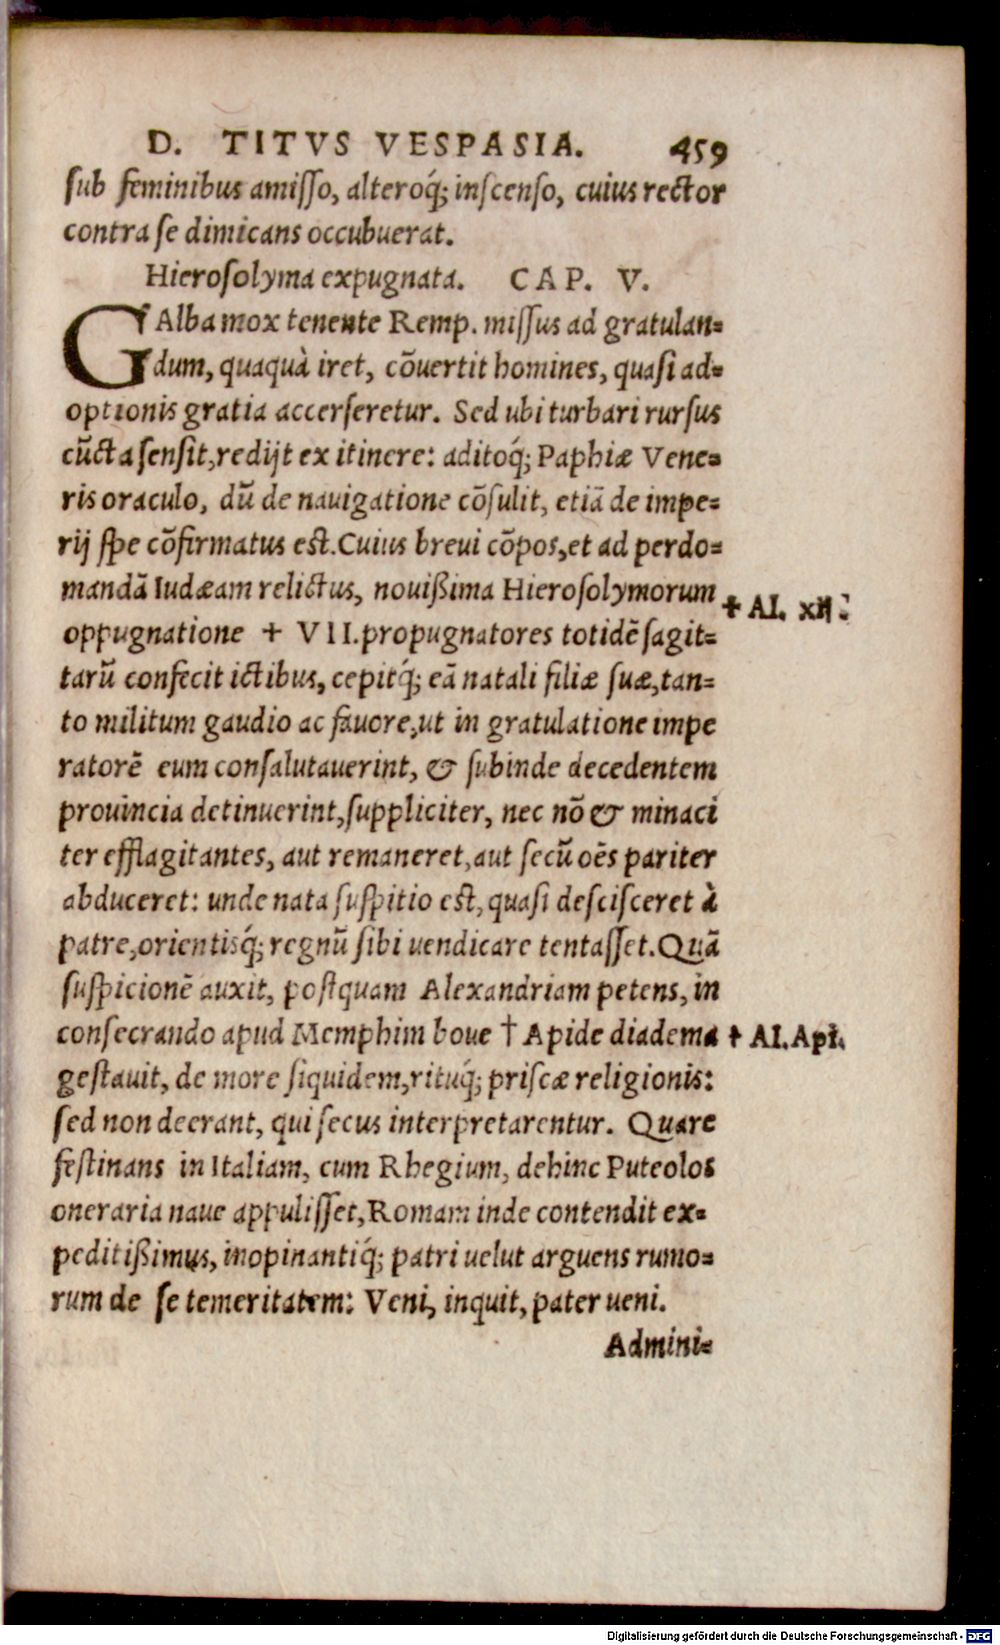 D. TITVS VESPASIA. 459
sub feminibus amisso, alteroq́; inscenso, cuius rector
contra se dimicans occubuerat.
Hierosolyma expugnata. CAP. V.
GAlba mox tenente Remp. missus ad gratulan-
dum, quaquà iret, cōuertit homines, quasi ad-
optionis gratia accerseretur. Sed ubi turbari rursus
cūcta sensit, redijt ex itinere: aditoq́; Paphiæ Vene-
ris oraculo, dū de nauigatione cōsulit, etiā de impe-
rij spe cōfirmatus est. Cuius breui cōpos, et ad perdo-
mandā Iudæam relictus, nouißima Hierosolymorum
oppugnatione + VII. propugnatores totidē sagit-
tarū confecit ictibus, cepitq́; eā natali filiæ suæ, tan-
to militum gaudio ac fauore, ut in gratulatione impe
ratorē eum consalutauerint, & subinde decedentem
prouincia detinuerint, suppliciter, nec nō & minaci
ter efflagitantes, aut remaneret, aut secū oēs pariter
abduceret: unde nata suspitio est, quasi descisceret à
patre, orientisq́; regnū sibi uendicare tentasset. Quā
suspicionē auxit, postquam Alexandriam petens, in
consecrando apud Memphim boue † Apide diadema
gestauit, de more siquidem, rituq́; priscæ religionis:
sed non deerant, qui secus interpretarentur. Quare
festinans in Italiam, cum Rhegium, dehinc Puteolos
oneraria naue appulisset, Romam inde contendit ex-
peditißimus, inopinantiq́; patri uelut arguens rumo-
rum de se temeritatem: Veni, inquit, pater ueni.
Admini-
+ Al. xij
† Al. Api.
Digitalisierung gefördert durch die Deutsche Forschungsgemeinschaft - DFG